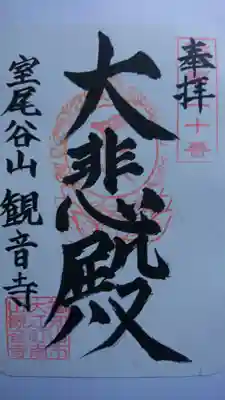 奉拝
十番
大悲殿
室尾谷山観音寺